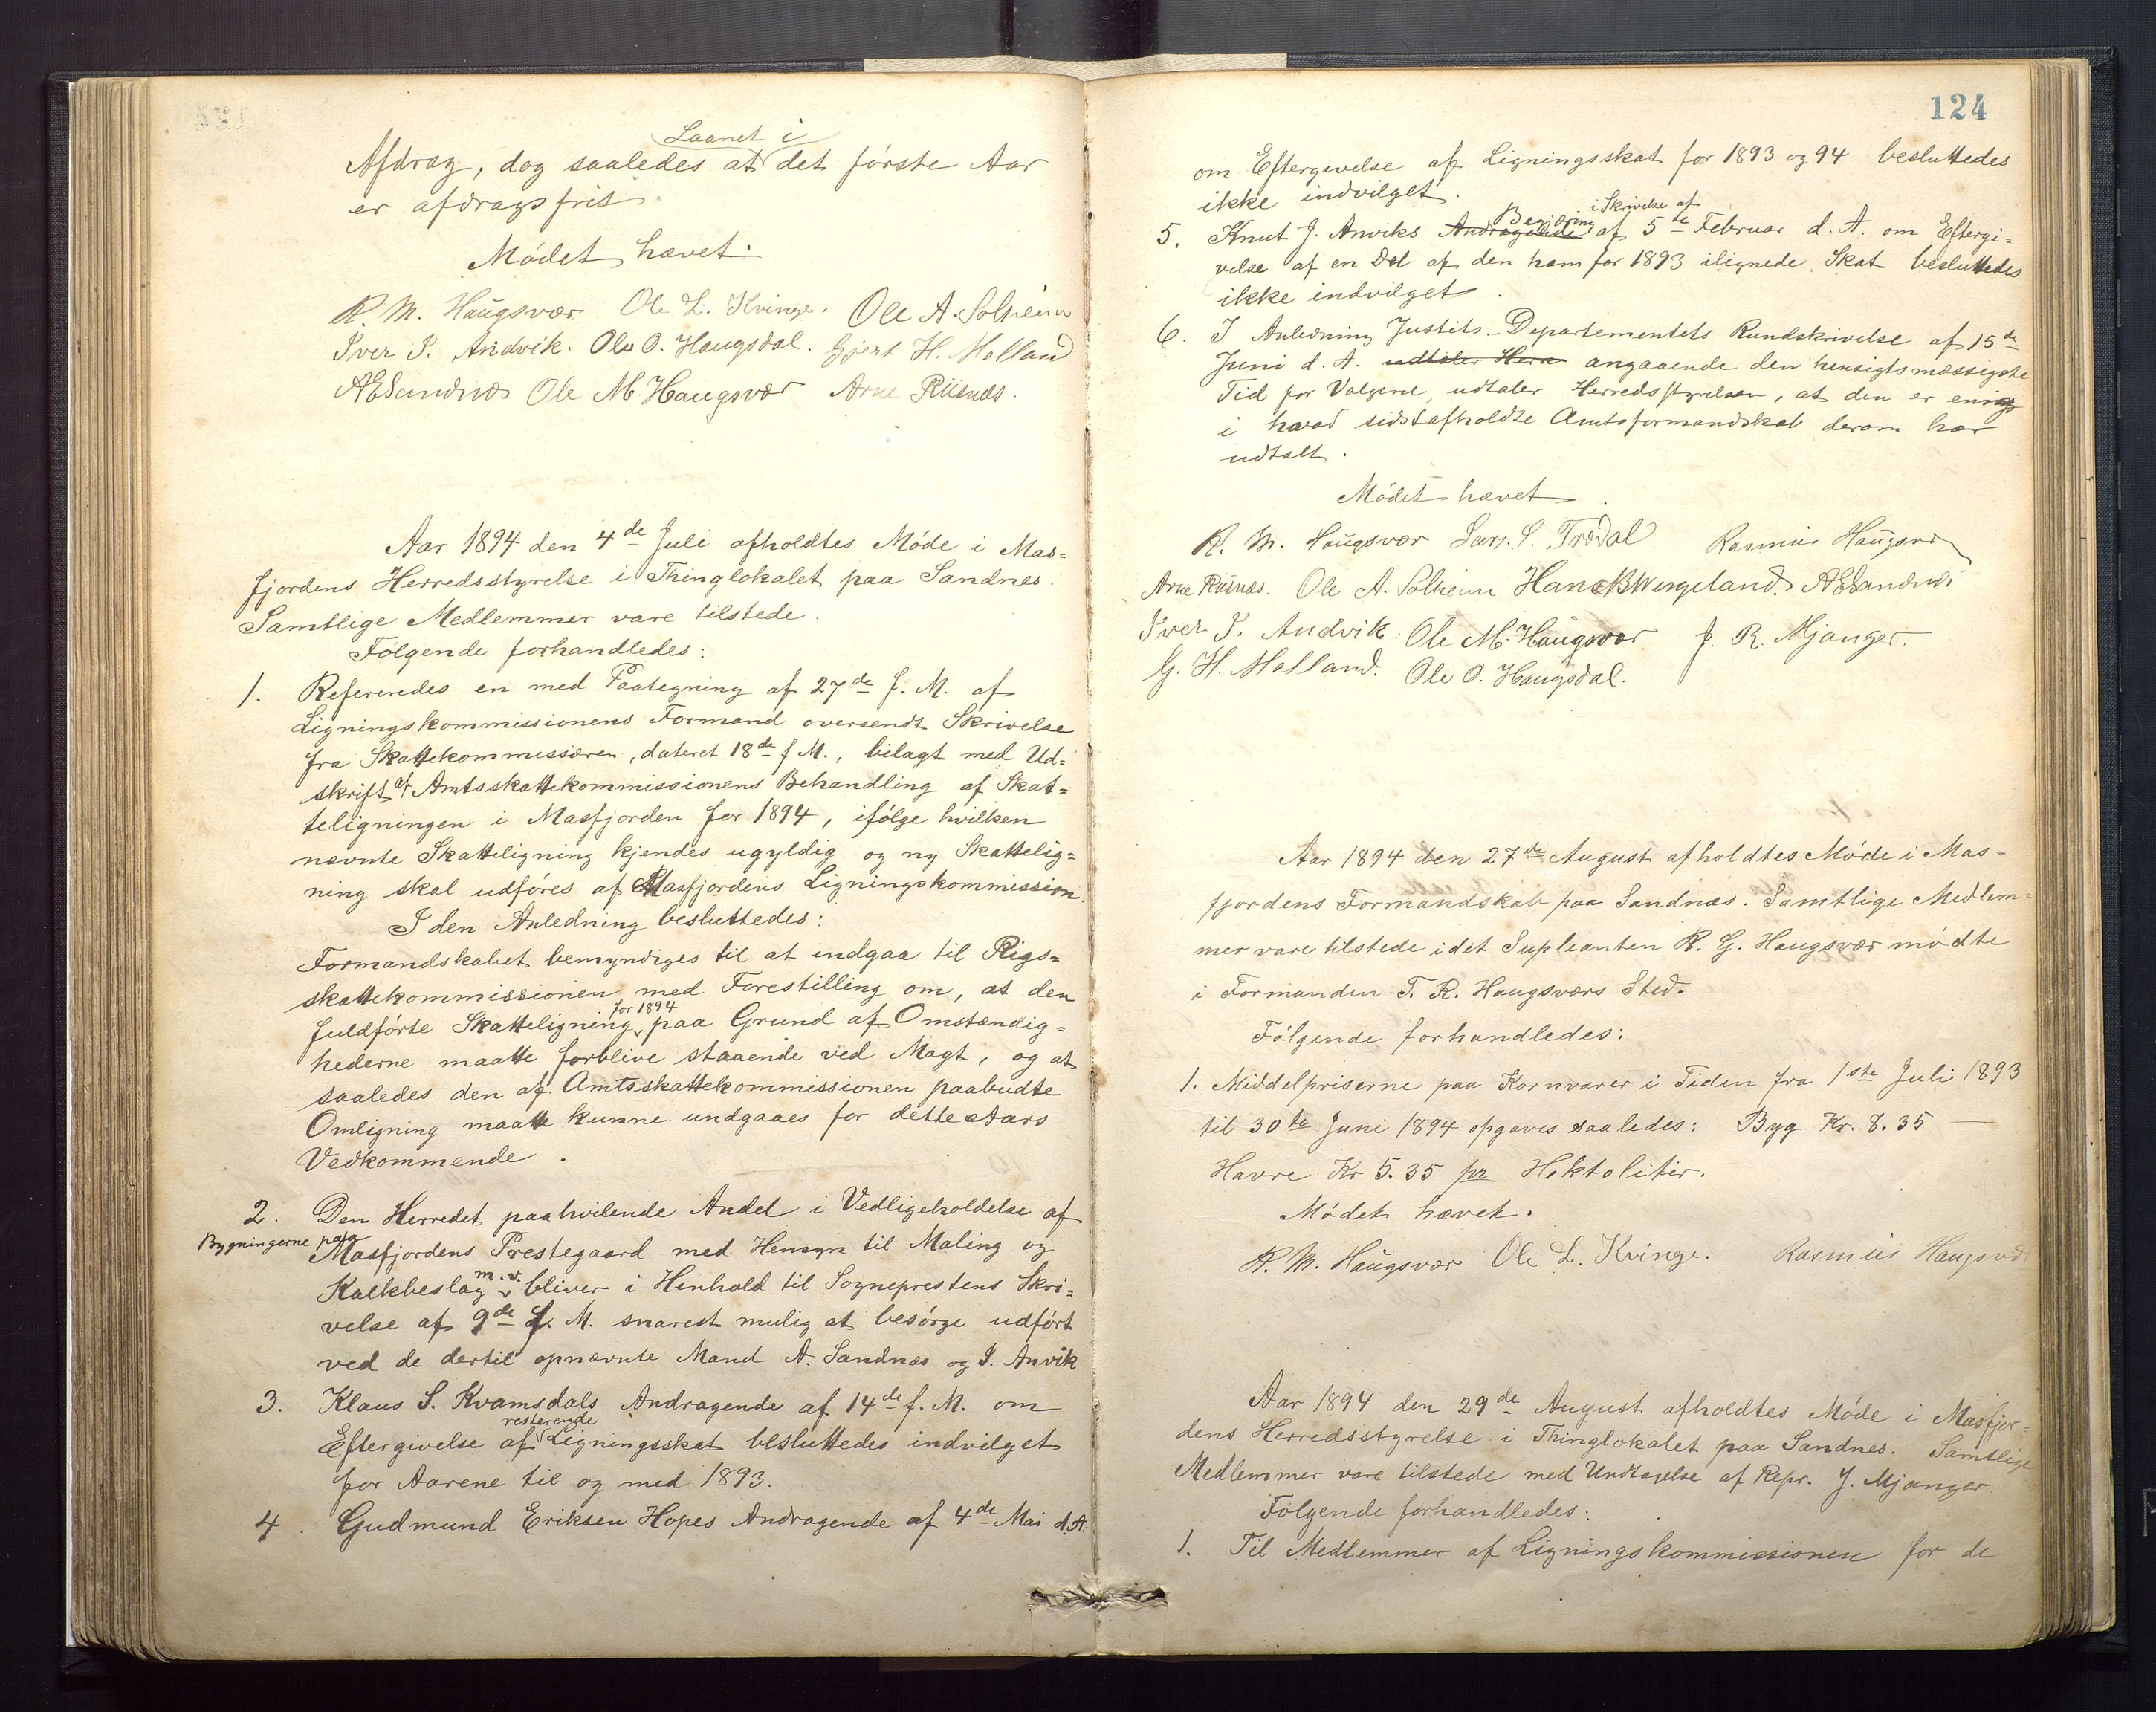 Laanet i
Afdrag, dog saaledes at det første Aar
er afdragsfrit.
Mødet hævet.
R. M. Haugsvær Ole L. Kvinge. Ole A. Solheim
Iver P. Andvik. Ole O. Haugsdal. Gjert H. Molland
AESandnæs Ole M Haugsvær Arne Riisnæs.
Aar 1894 den 4de Juli afholdtes Møde i Mas=
fjordens Herredsstyrelse i Thinglokalet paa Sandnes.
Samtlige Medlemmer vare tilstede.
Følgende forhandledes:
1. Refereredes en med Paategning af 27de f. M. af
Ligningskommissionens Formand oversendt Skrivelse
fra Skattekommissæren, dateret 18de f M., bilagt med Ud=
skrift af Amtsskattekommissionens Behandling af Skat=
teligningen i Masfjorden for 1894, ifølge hvilken
nævnte Skatteligning kjendes ugyldig og ny Skattelig=
ning skal udføres af Masfjordens Ligningskommission.
I den Anledning besluttedes:
Formandskabet bemyndiges til at indgaa til Rigs=
skattekommissionen med Forestilling om, at den
for 1894
fuldførte Skatteligning paa Grund af Omstændig=
hederne maatte forblive staaende ved Magt, og at
saaledes den af Amtsskattekommissionen paabudte
Omligning maatte kunne undgaaes for dette Aars
Vedkommende.
2. Den Herredet paahvilende Andel i Vedligeholdelse af
Bygningerne paa
Masfjordens Prestegaard med Hensyn til Maling og
m. v.
Kalkbeslag bliver i Henhold til Sogneprestens Skri=
velse af 9de f. M. snarest mulig at besørge udført
ved de dertil opnævnte Mænd A. Sandnæs og I. Anvik
3. Klaus S. Kvamsdals Andragende af 14de f. M. om
resterende
Eftergivelse af Ligningsskat besluttedes indvilget
for Aarene til og med 1893.
4. Gudmund Eriksen Hopes Andragende af 4de Mai d. A.
124
om Eftergivelse af Ligningsskat for 1893 og 94 besluttedes
ikke indvilget.
Begjæring i Skrivelse af
5. Knut J. Anviks Andragende af 5te Februar d. A. om Eftergi=
velse af en Del af den ham for 1893 ilignede Skat besluttedes
ikke indvilget.
6. I Anledning Justits-Departementets Rundskrivelse af 15de
Juni d. A. udtaler Herr angaaende den hensigtsmæssigste
Tid for Valgene, udtaler Herredsstyrelsen, at den er enig
i hvad sidstafholdte Amtsformandskab derom har
udtalt.
Mødet hævet.
R. M. Haugsvær Lars. S. Trædal Rasmus Haugsvær
Arne Riisnæs. Ole A. Solheim Hans B Wergeland. AESandnæs
Iver P. Andvik. Ole M. Haugsvær J. R. Mjanger.
G. H. Molland. Ole O. Haugsdal.
Aar 1894 den 27de August afholdtes Møde i Mas-
fjordens Formandskab paa Sandnæs. Samtlige Medlem=
mer vare tilstede idet Supleanten R. G. Haugsvær mødte
i Formanden T. R. Haugsværs Sted.
Følgende forhandledes:
1. Middelpriserne paa Kornvarer i Tiden fra 1ste Juli 1893
til 30te Juni 1894 opgaves saaledes: Byg Kr. 8.35 —
Havre Kr 5.35 pr Hektoliter.
Mødet hævet.
R. M. Haugsvær Ole L. Kvinge. Rasmus Haugsvær
Aar 1894 den 29de August afholdtes Møde i Masfjor=
dens Herredsstyrelse i Thinglokalet paa Sandnes. Samtlige
Medlemmer vare tilstede med Undtagelse af Repr. J. Mjanger
Følgende forhandledes:
1. Til Medlemmer af Ligningskommissionen for de